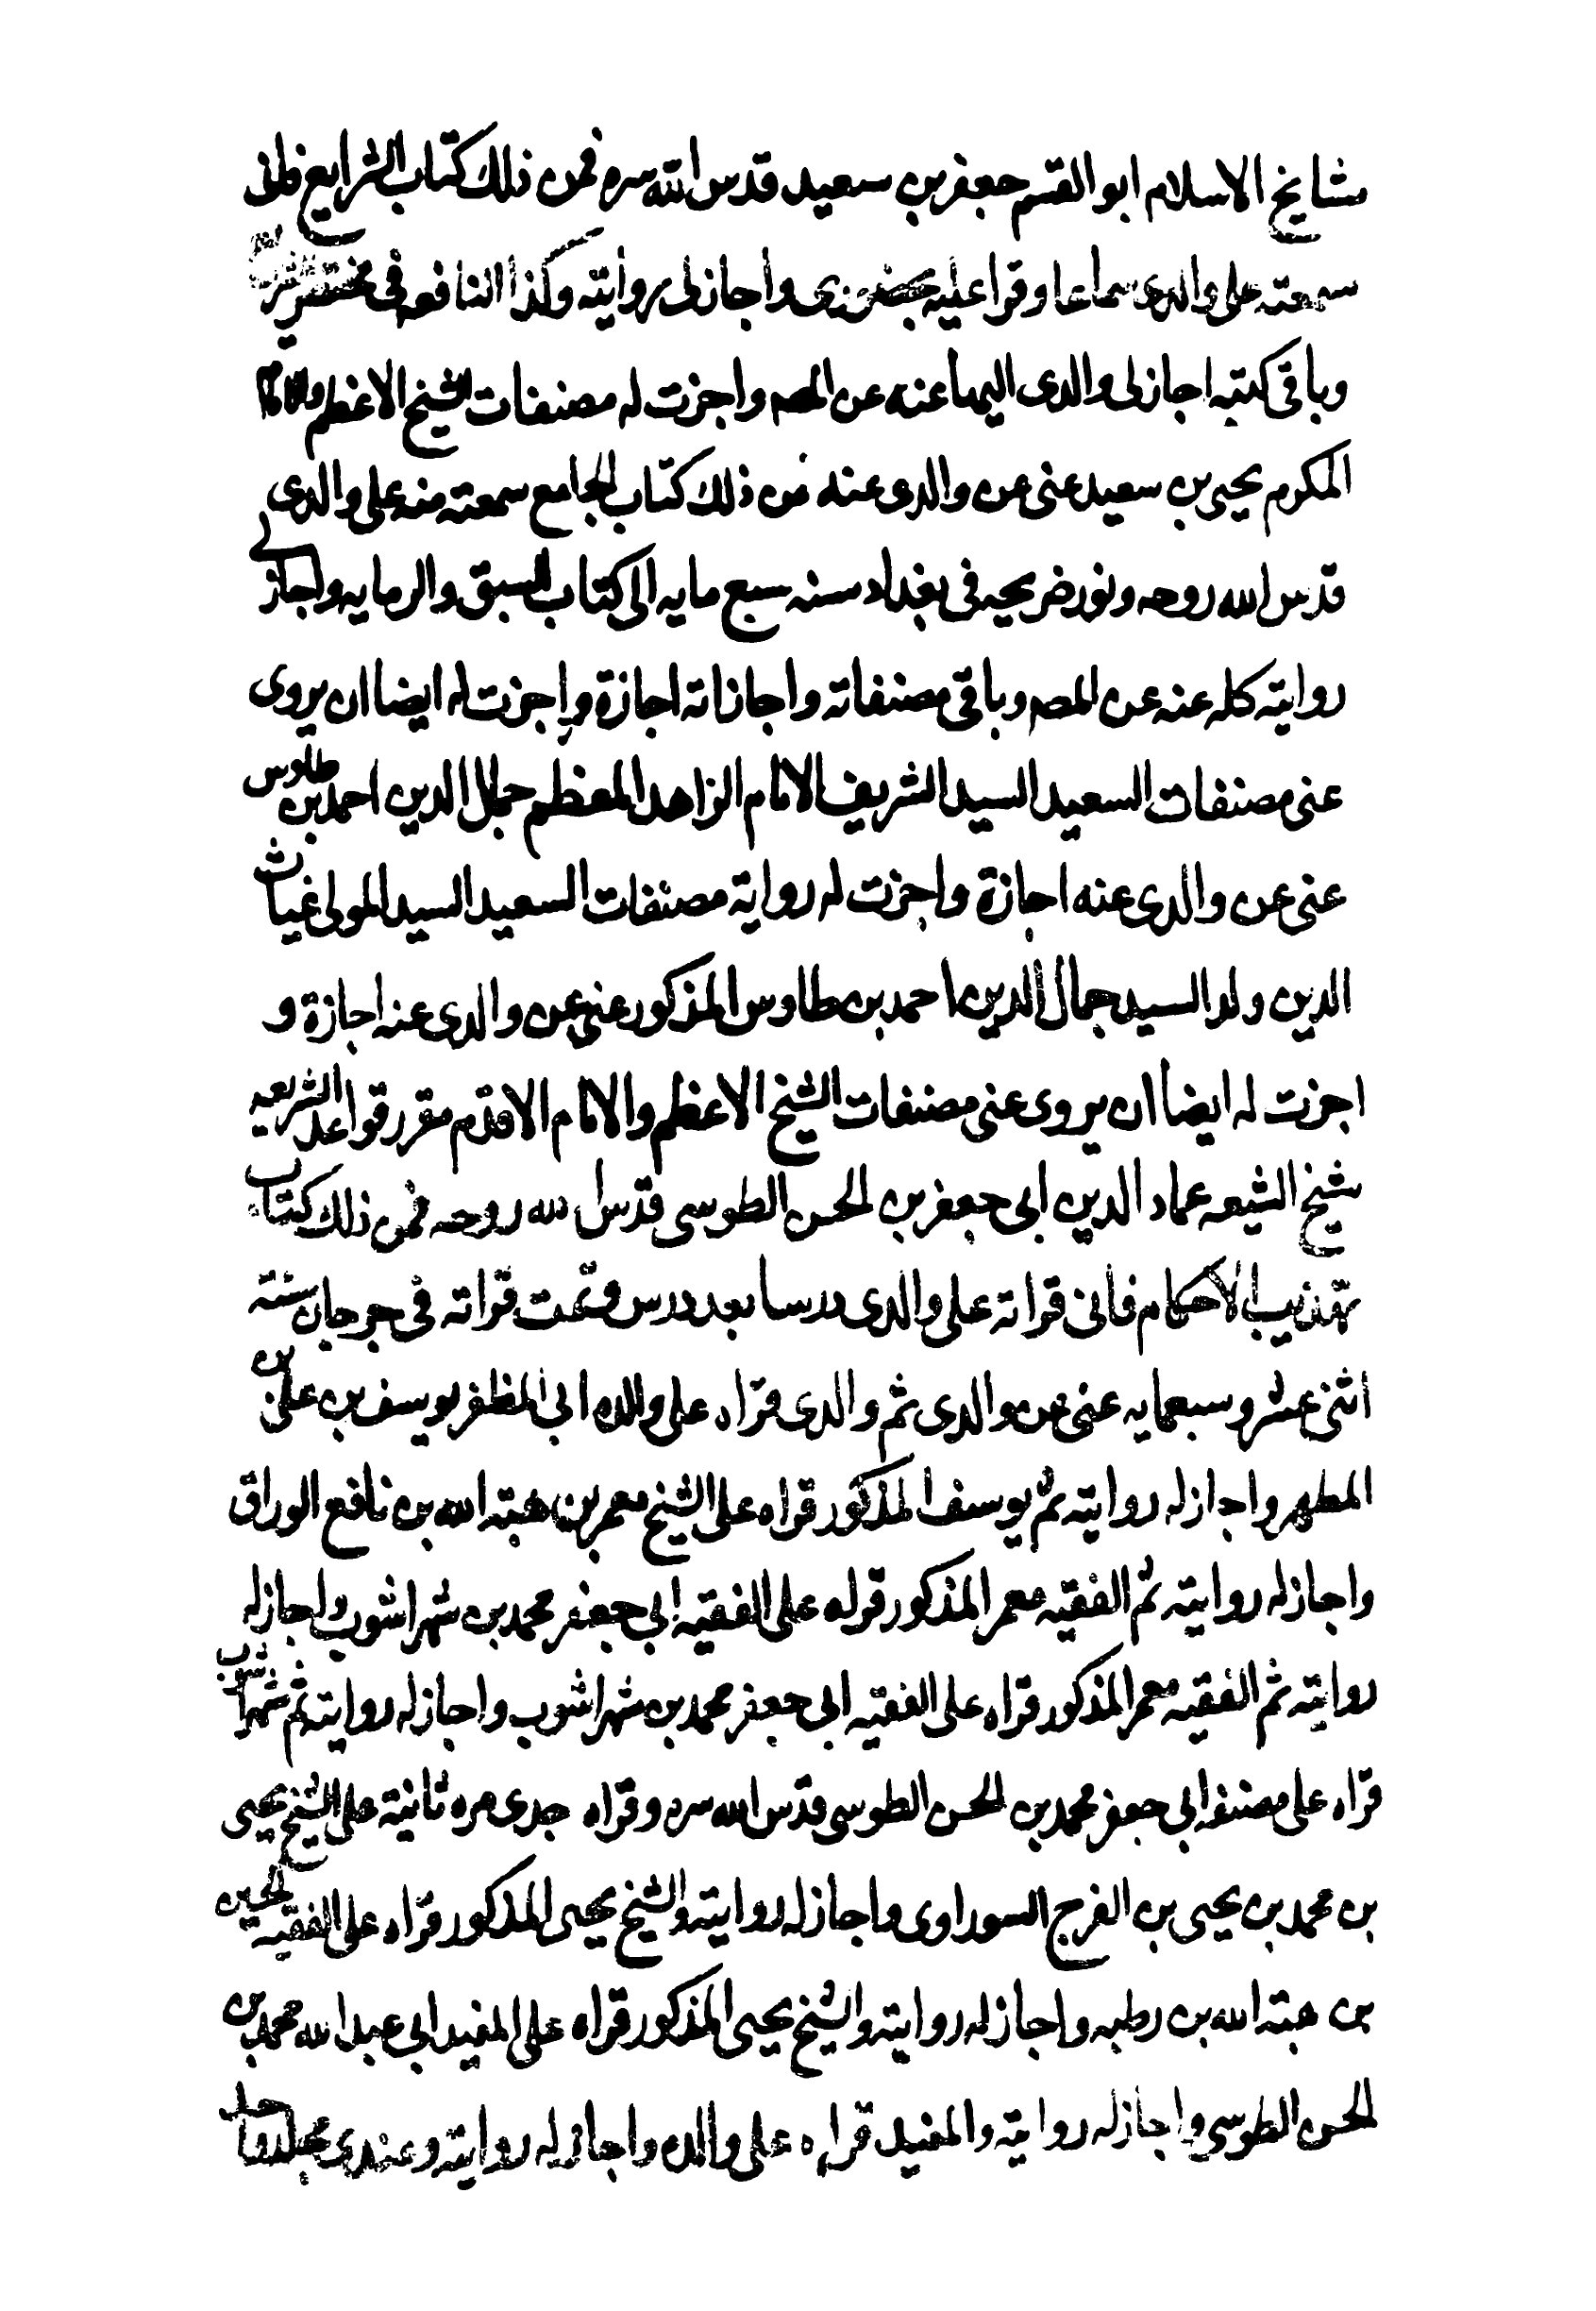 مشايخ الاسلام ابو القسم جعفر بن سعيد قدس الله سره فمن ذلك كتاب الشرايع فانى
سمعته على والدى سماعا وقرا عليه بحضورى واجاز لى روايته وكذا النافع فى مختصر
وباقى كتبه اجاز لى والدى اليها عنه عن المصـ واجزت له مصنفات الشيخ الاعظم والامام
المكرم يحيى بن سعيد عنى عن والدى عنه فمن ذلك كتاب الجامع سمعته منه على والدى
قدس الله روحه ونور ضريحه فى بغداد سنه سبع مايه الى كتاب السبق والرمايه واجاز لى
روايته كله عنه عن المصـ وباقى مصنفاته واجازاته اجازة واجزت له ايضا ان يروى
عنى مصنفات السعيد السيد الشريف الامام الزاهد المعظم جمال الدين احمد بن طاوس
عنى عن والدى عنه اجازة واجزت له رواية مصنفات السعيد السيد المولى غياث
الدين ولد السيد جمال الدين احمد بن طاوس المذكور عنى عن والدى عنه اجازة و
اجزت له ايضا ان يروى عنى مصنفات الشيخ الاعظم والامام الاقدم مقرر قواعد الشريعه
شيخ الشيعه عماد الدين ابى جعفر بن الحسن الطوسى قدس الله روحه فمن ذلك كتاب
تهذيب الاحكام فانى قراته على والدى درسا بعد درس وتمت قراته فى جرجان سنة
اثنى عشر وسبعمايه عنى عن والدى ثم والدى قراه على والده ابى المظفر يوسف بن على بن
المطهر واجاز له روايته ثم يوسف المذكور قراه على الشيخ معمر بن هبة الله بن نافع الوراق
واجاز له روايته ثم الفقيه معمر المذكور قراه على الفقيه ابى جعفر محمد بن شهراشوب واجاز له
روايته ثم الفقيه معمر المذكور قراه على الفقيه ابى جعفر محمد بن شهراشوب واجاز له روايته ثم شهراشوب
قراه على مصنفه ابى جعفر محمد بن الحسن الطوسى قدس الله سره وقراه جدى مره ثانية على الشيخ يحيى
بن محمد بن يحيى بن الفرج السوراوى واجاز له روايته والشيخ يحيى المذكور قراه على الفقيه الحسين
بن هبة الله بن رطبه واجاز له روايته والشيخ يحيى المذكور قراه على المفيد ابى عبد الله محمد بن
الحسن الطوسى واجاز له روايته والمفيد قراه على والده واجاز له روايته وعندى مجلد واحد